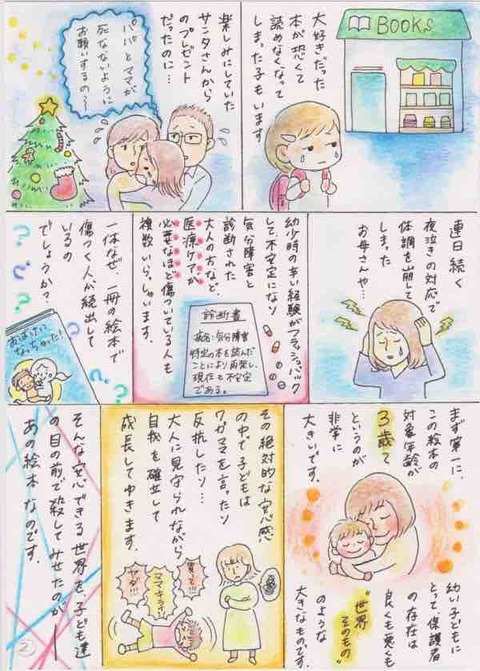 BOOKS
大好きだった
本が恐くて
読めなくなって
しまった子もいます
楽しみにしていた
サンタさんから
のプレゼント
だったのに…
パパとママが
死なないように
お願いするの〜〜
連日続く
夜泣きの対応で
体調を崩して
しまった
お母さんや、
幼少時の辛い経験がフラッシュバック
して不安定になり
気分障害と
診断された
大人の方など、
医療ケアが
必要なほど傷ついている人も
複数いらっしゃいます。
診断書
病名:気分障害
特定の本を読んだ
ことにより再発し、
現在も不安定
である。
一体なぜ、一冊の絵本で
傷つく人が続出して
いるの
でしょうか?
おばけに
なっちゃった!
まず第一に、
この絵本の
対象年齢が
3歳〜
というのが
非常に
大きいです。
幼い子どもに
とって、保護者
の存在は
良くも悪くも
“世界
そのもの”
のような
大きなものです。
その絶対的な安心感
の中で子どもは
ワガママを言ったり
反抗したり…
大人に見守られながら
自我を確立して
成長してゆきます。
ママキライ!
ヤダ!
そんな安心できる世界を、子ども達
の目の前で殺してみせたのが―
あの絵本なのです。
②